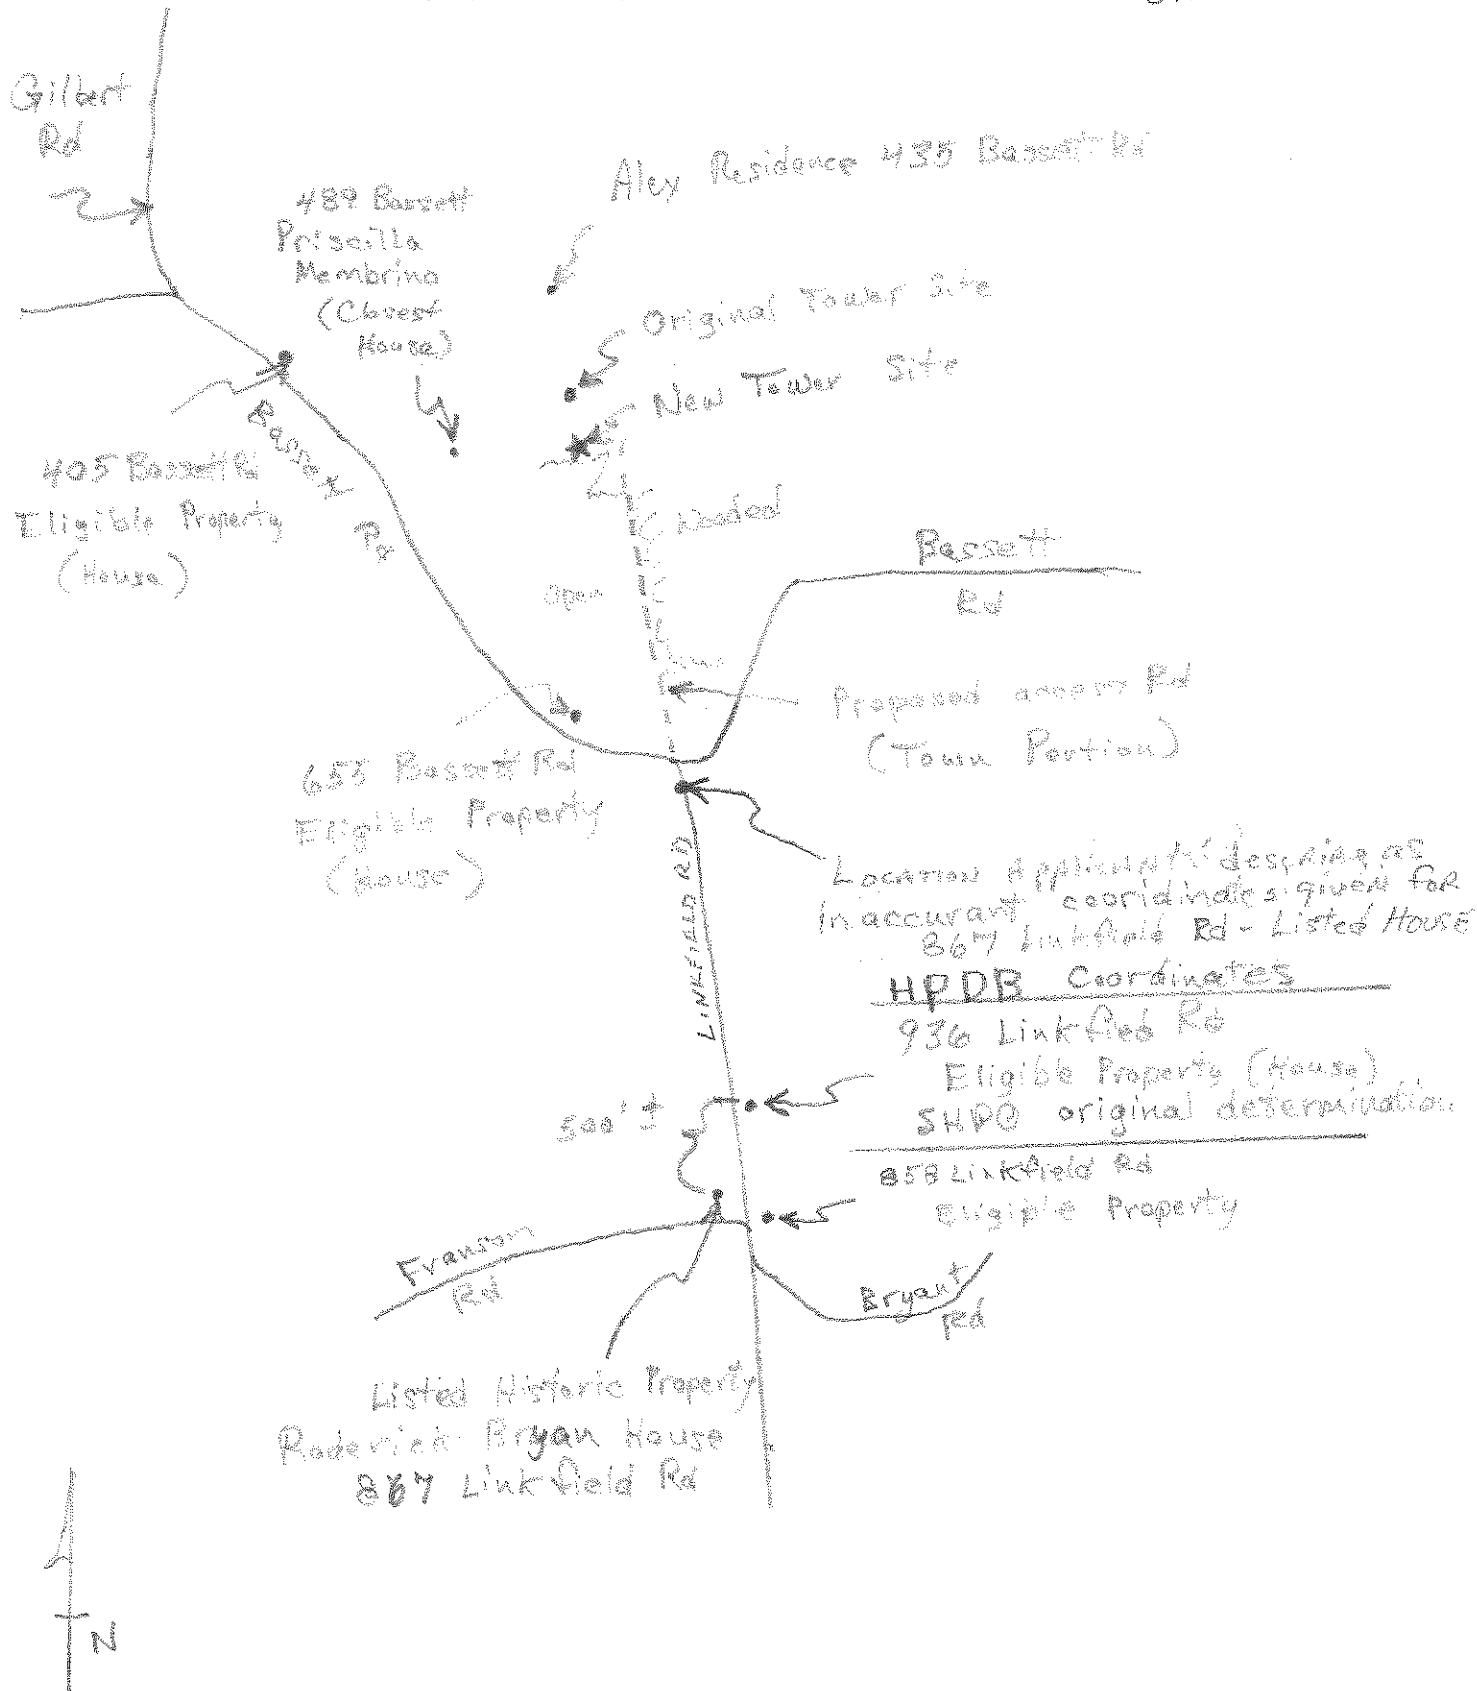 Gilbert
Rd
Alex Residence 435 Bassett Rd
489 Bassett
Priscilla
Membrino
(Closest
House)
Original Tower Site
New Tower Site
405 Bassett Rd
Eligible Property
(House)
Bassett Rd
Wooded
Open
Bassett
Rd
Proposed access Rd
(Town Portion)
655 Bassett Rd
Eligible Property
(House)
LINKFIELD RD
Location Applicants describing as
inaccurant cooridinates given for
867 Linkfield Rd - Listed House
HPDB Coordinates
936 Linkfied Rd
Eligible Property (House)
SHPO original determination
500' ±
858 Linkfield Rd
Eligible Property
Franson
Rd
Bryant
Rd
Listed Historic Property
Roderick Bryan House
867 Linkfield Rd
N